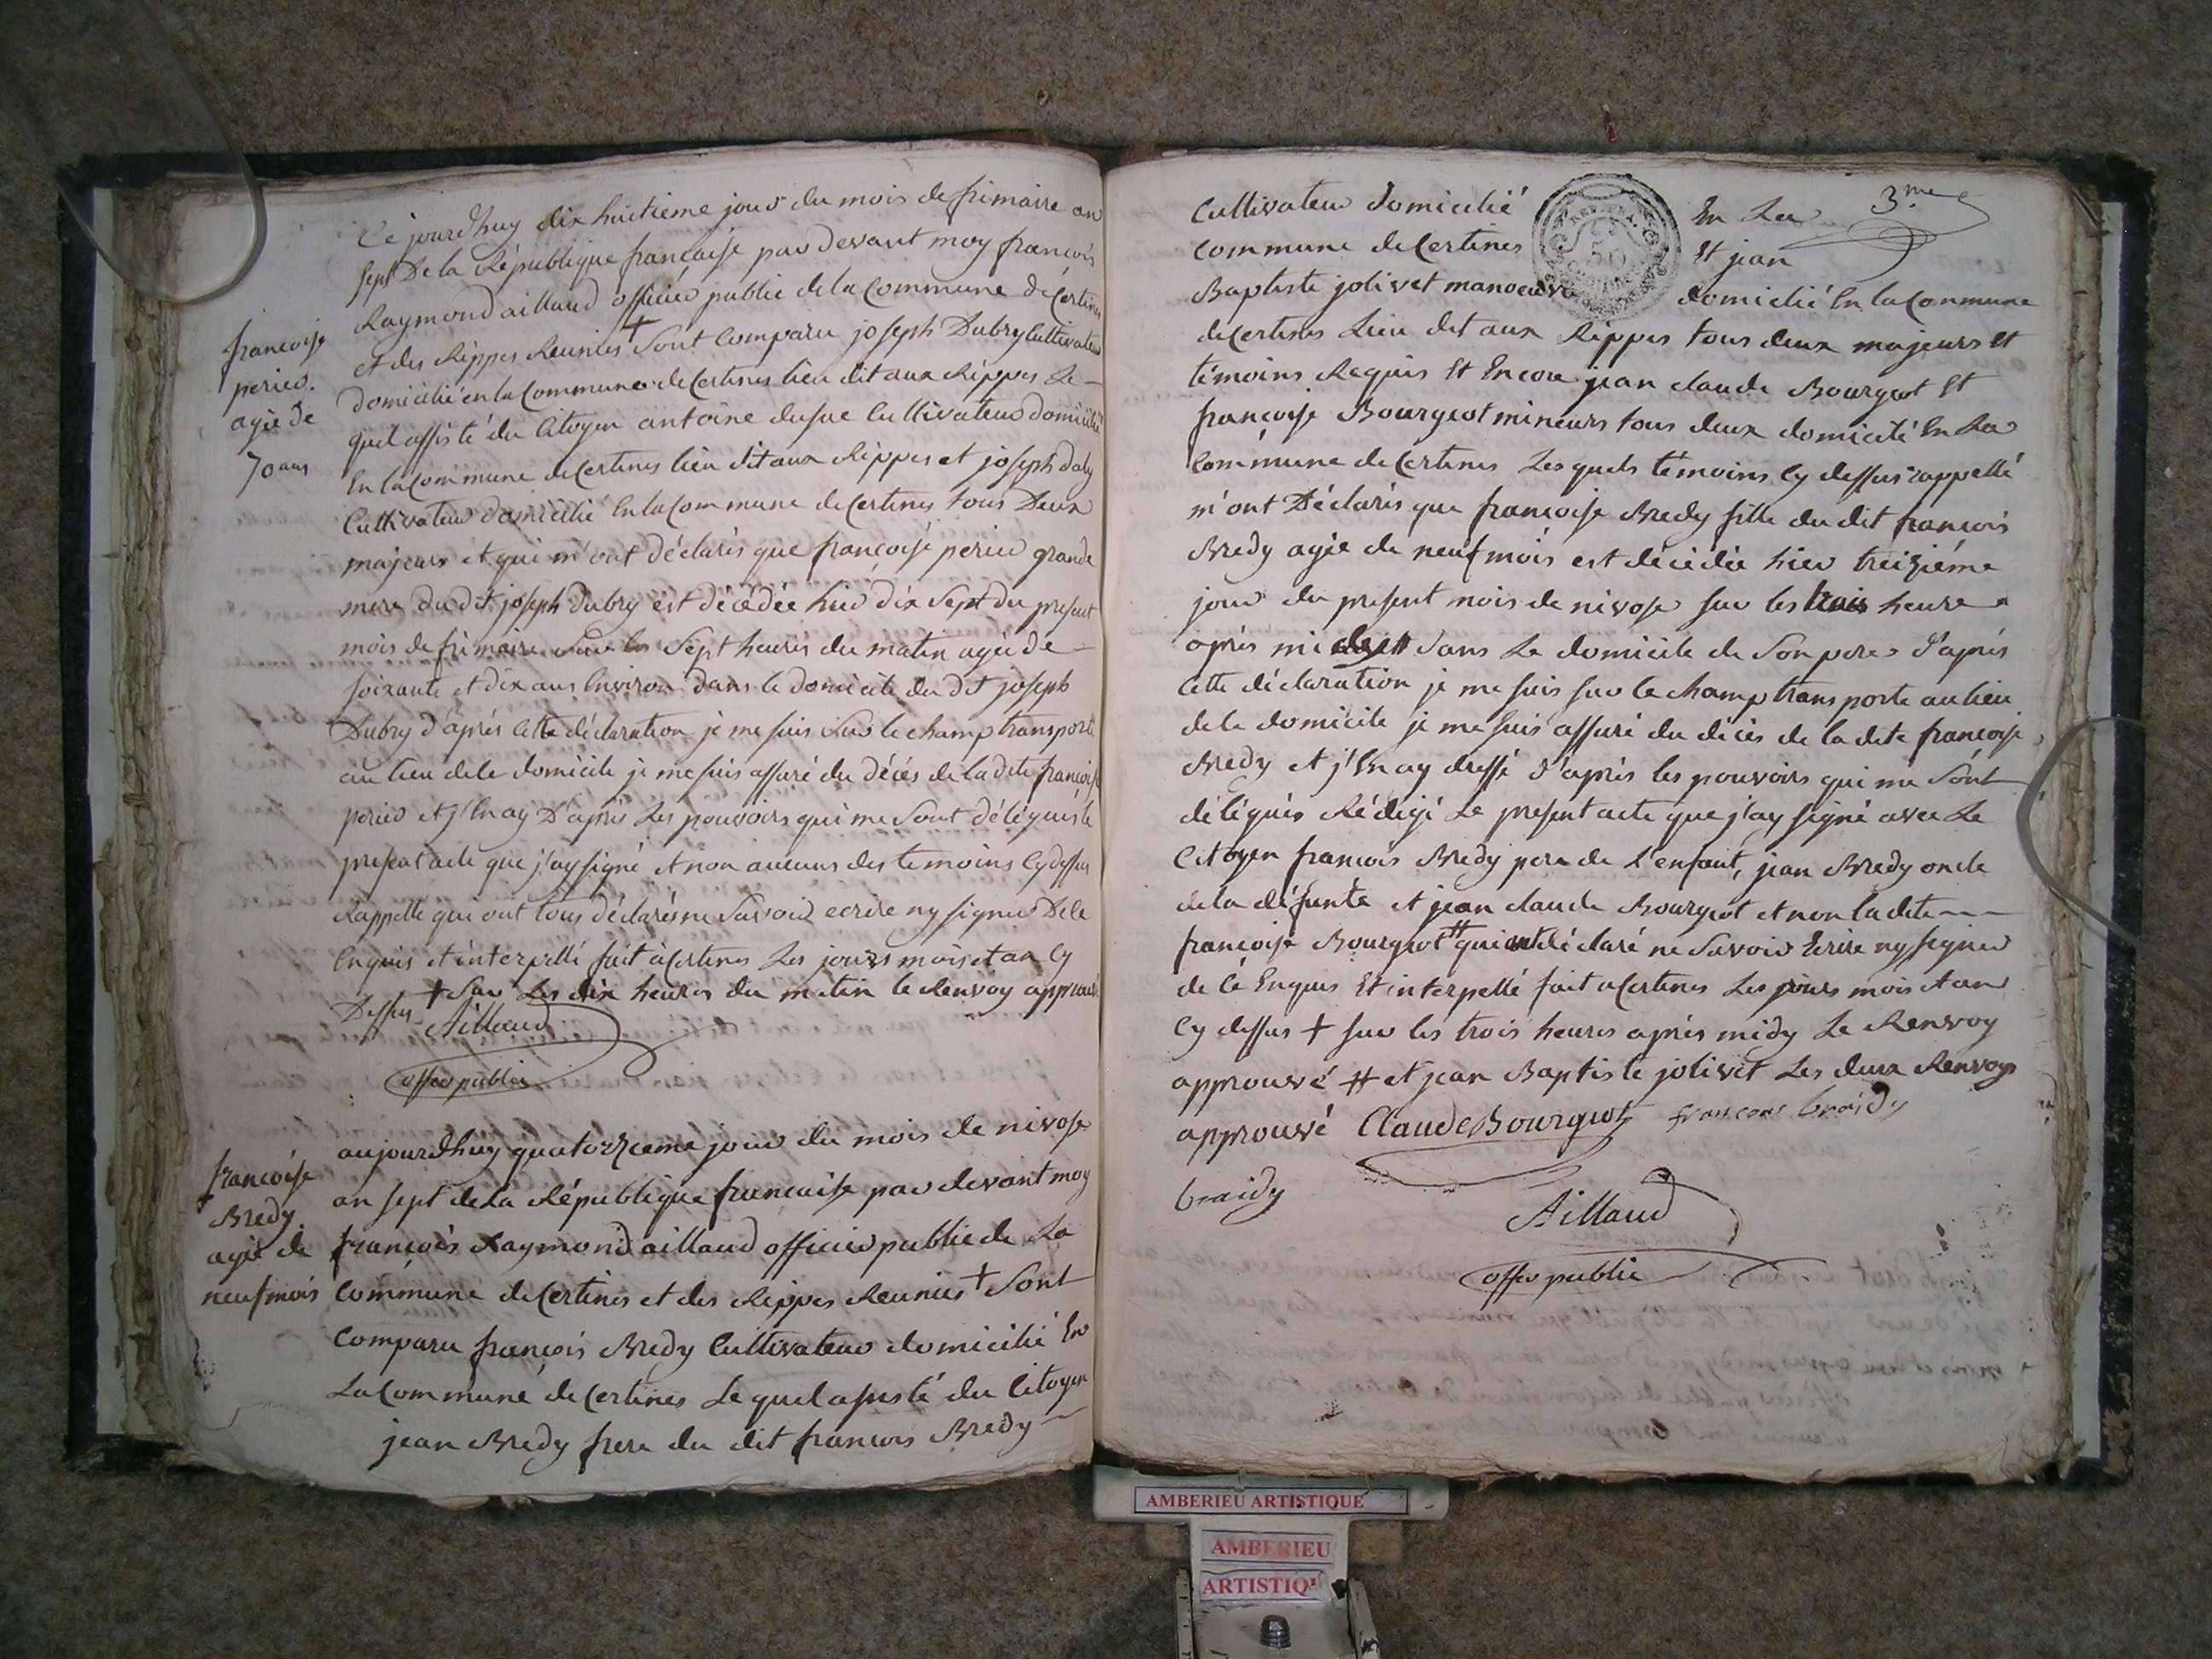 Ce jourdhuy dix huitieme jour du mois de frimaire an
sept De la République française par devant moy françois
Raymond aillaud officier public de la Commune de Certines
et des Rippes Reunies + Sont Comparu joseph Dubry Cultivateur
domicilié en la Commune de Certines lieu dit aux Rippes Le-
quel assisté du Citoyen antoine dufue Cultivateur domicilié
En la Commune de Certines lieu dit aux Rippes et joseph daly
Cultivateur domicilié En la Commune de Certines tous Deux
majeurs et qui m'ont déclarés que françoise perier grande
mere du dit joseph Dubry est décédée hier dix Sept du present
mois de frimaire sur les Sept heures du matin agée de -
soixante et dix ans Environ dans le domicile du dit joseph
Dubry d'après cette déclaration je me suis sur le champ transporté
au lieu de le domicile je me suis assuré du décés de la dite françoise
perier et j'En ay D'après Les pouvoirs qui me Sont délégués le
present acte que j'ay signé et non aucuns des temoins Cy dessus
Rappellé qui ont tous déclarés ne Savoir ecrire ny signer De le
Enquis et interpellé fait à Certines Les jours mois et an Cy
Dessus + Sur Les dix heures du matin le Renvoy approuvé
Aillaud
offier public
françoise
perier.
agée de
70 ans
aujourdhuy quatorzieme jour du mois de nivose
an sept de La République française par devant moy
françois Raymond aillaud officier public de La
Commune de Certines et des Rippes Reunies + Sont
Comparu françois Bredy Cultivateur domicilié En
La Commune de Certines Le quel assisté du Citoyen
jean Bredy frere du dit françois Bredy -
françoise
Bredy
agée de
neuf mois
Cultivateur domicilié En La 3.me
Commune de Certines Et jean
Baptiste jolivet manoeuvre domicilié En la Commune
de Certines Lieu dit aux Rippes tous deux majeurs Et
témoins Requis Et Encore jean claude Bourgeot Et
françoise Bourgeot mineurs tous deux domicilié En La
Commune de Certines Les quels témoins Cy dessus rappellé
m'ont Déclarés que françoise Bredy fille du dit françois
Bredy agée de neuf mois est décédée hier treizième
jour du present mois de nivose sur les trois heure
après mi dans Le domicile de Son pere D'après
Cette déclaration je me suis sur le champ transporté au lieu
de le domicile je me suis assuré du décés de la dite françoise
Bredy et j'En ay dressé D'après les pouvoirs qui me Sont
délégués Rédigé Le present acte que j'ay signé avec Le
Citoyen françois Bredy pere de L'enfant, jean Bredy oncle
de la défunte et jean claude Bourgeot et non la dite ---
françoise Bourgeot # qui ont déclaré ne Savoir Ecrire ny signer
de Cé Enquis Et interpellé fait a Certines Les jours mois et an
Cy dessus + sur les trois heures après midy Le Renvoy
approuvé # et jean Baptiste jolivet Les deux Renvoys
approuvé Claude Bourgeot francois braidy
braidy
Aillaud
offier public
AMBERIEU ARTISTIQUE
AMBERIEU
ARTISTIQ